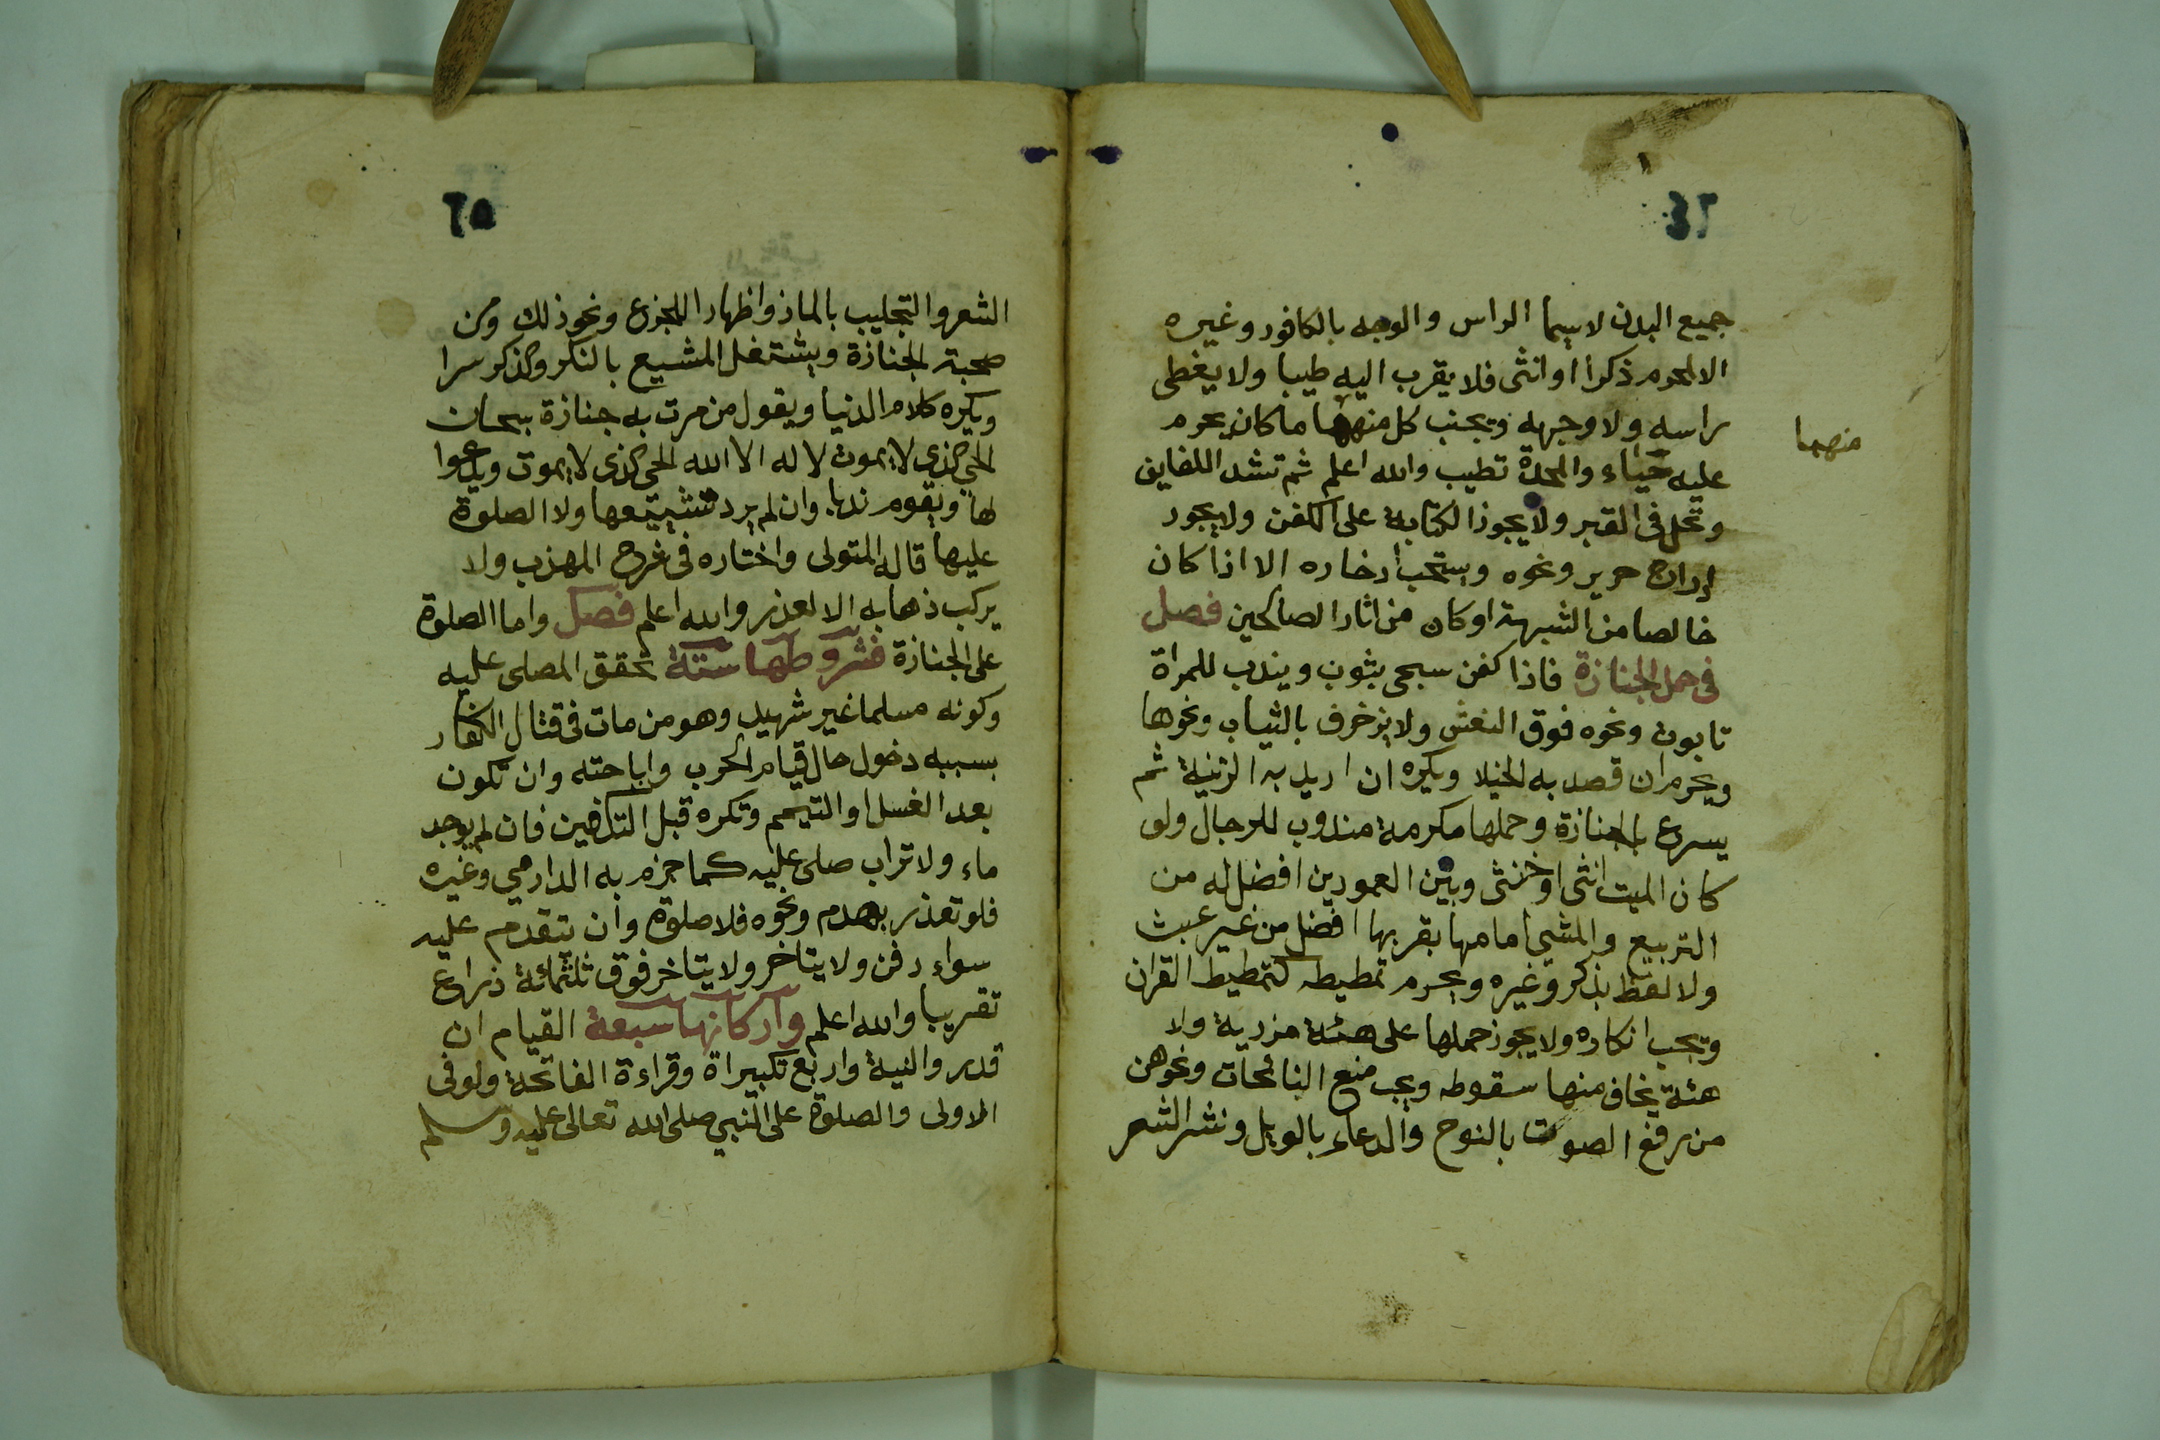 ٢٤
جميع البدن لاسيما الراس والوجه بالكافور وغيره
الا المحرم ذكرا او انثى فلا يقرب اليه طيبا ولا يغطى
راسه ولا وجهه وتجنب كل منهما ما كان يحرم
منهما
عليه حياء والمحدة تطيب والله اعلم ثم تشد اللفايف
وتحل فى القبر ولا يجوز الكتابة على الكفن ولا يجوز
ادراج حرير ونحوه ويستحب ادخاره الا اذا كان
خالصا من الشبهة او كان من اثار الصالحين فصل
فى حمل الجنازة فاذا كفن سجى بثوب ويندب للمراة
تابوت ونحوه فوق النعش ولا يزخرف بالثياب ونحوها
ويحرم ان قصد به الخيلا ويكره ان اريد به الزينة ثم
يسرع بالجنازة وحملها مكرمة مندوب للرجال ولو
كان الميت انثى او خنثى وبين العمودين افضل له من
التربيع والمشى امامها بقربها افضل من غير عبث
ولا لفظ بذكر وغيره ويحرم تمطيطه كتمطيط القران
وتجب انكاره ولا يجوز حملها على هئة مزرية ولا
هئة يخاف منها سقوطه ويجب منع النائحات ونحوهن
من رفع الصوت بالنوح والدعاء بالويل ونشر الشعر
٢٥
الشعر والتجليب بالماذ واظهار الجزع ونحو ذلك ومن
صحبة الجنازة ويشتغل المشيع بالفكر والذكر سرا
ويكره كلام الدنيا ويقول من مرت به جنازة سبحان
الحى الذى لا يموت لا اله الا الله الحى الذى لا يموت ويدعوا
لها ويقوم ندبا وان لم يرد تشييعها ولا الصلوة
عليها قاله المتولى واختاره فى شرح المهذب ولا
يركب ذهابه الا لعذر والله اعلم فصل واما الصلوة
على الجنازة فشروطها ستة تحقق المصلى عليه
وكونه مسلما غير شهيد وهو من مات فى قتال الكفار
بسببه دخول حال قيام الحرب واباحته وان تكون
بعد الغسل او التيمم وتكره قبل التكفين فان لم يوجد
ماء ولا تراب صلى عليه كما جزم به الدارمي وغيره
فلو تعذر بهدم ونحوه فلا صلوة وان يتقدم عليه
سواء دفن ولا يتاخر ولا يتاخر فوق ثلثمائة ذراع
تقريبا والله اعلم واركانها سبعة القيام ان
قدر والنية واربع تكبيراة وقراءة الفاتحة ولو فى
الاولى والصلوة على النبي صلى الله تعالى عليه وسلم